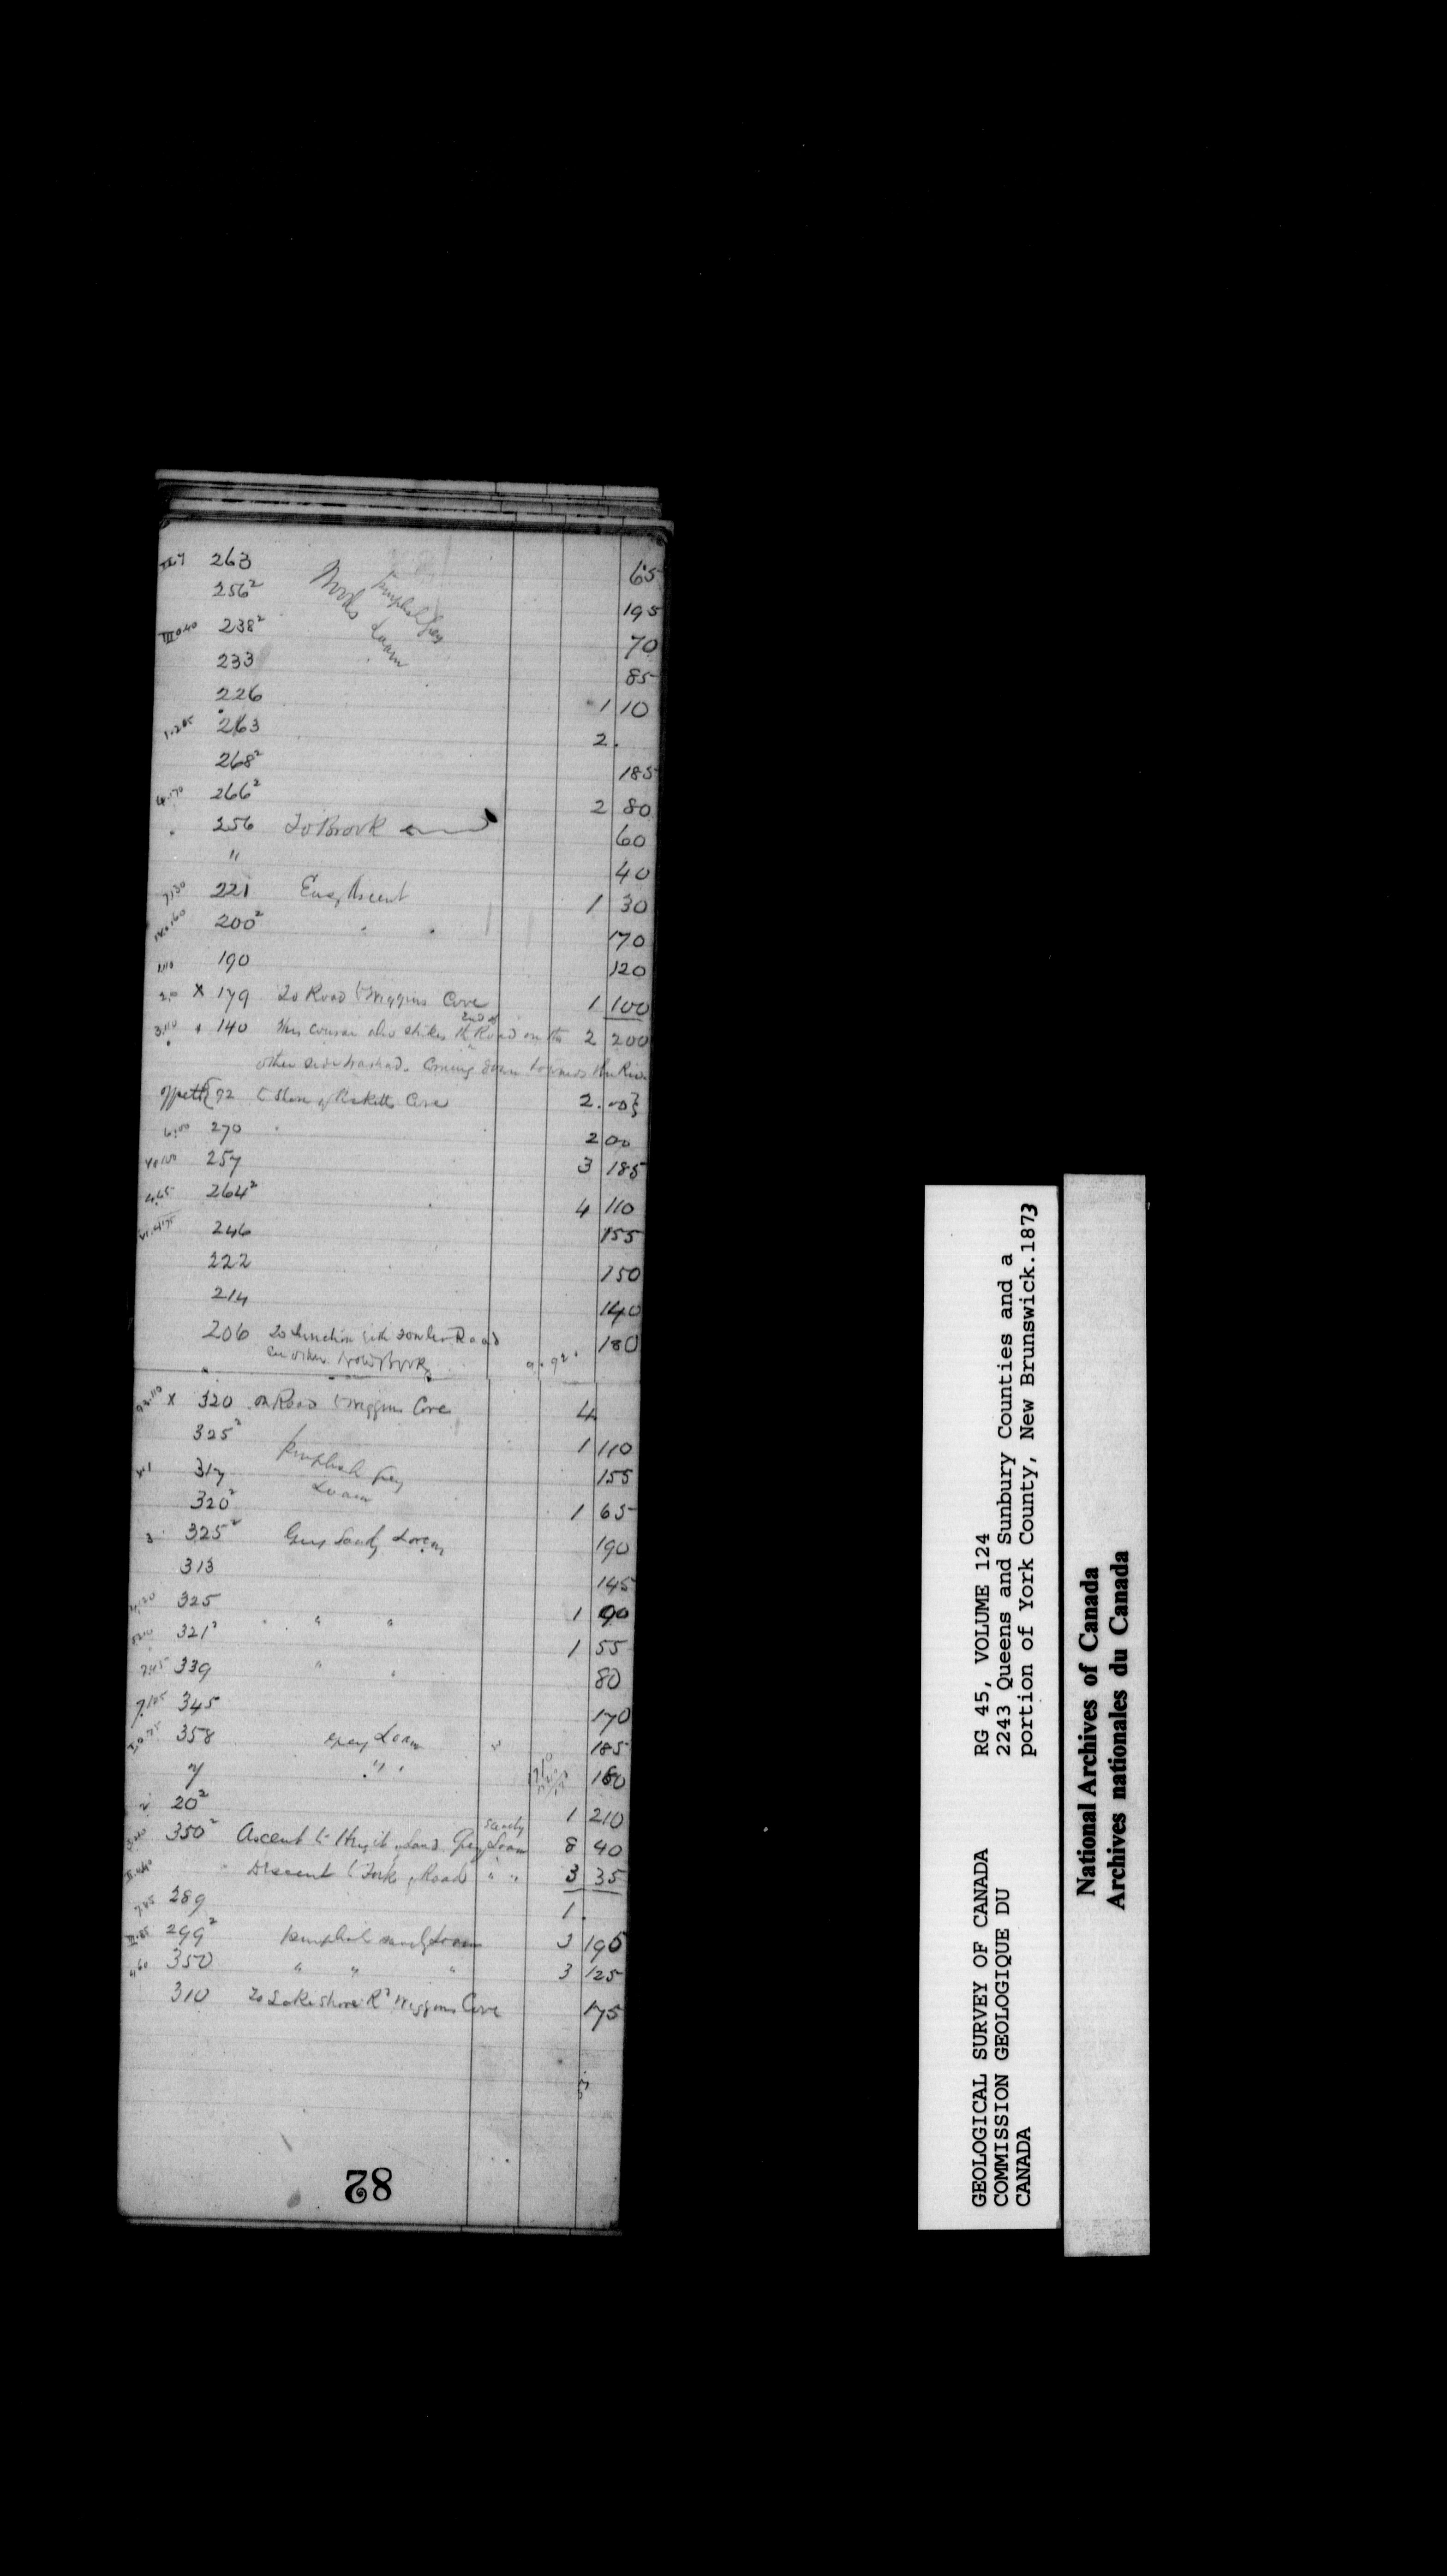 II.7 263 65
256² Woods Purplish Grey 195
III 0.40 238² Loam 70
233 85
226 1 10
1.205 263 2.
268² 185
4.170 266² 2 80
256 To Brook 60
" 40
7.30 221 Easy Ascent 1 30
200² 170
1.110 190 120
X 179 To Road to Wiggins Cove 1 100
3.110 140 This course also strikes the 2nd Road on the 2 200
other side Coming down towards the River
92 to Shore of Cove 2.00}
6.00 270 2 00
257 3 185
4.65 264² 4 110
246 155
222 150
214 140
206 To Junction with Road 180
see other Note Book
X 320 on Road to Wiggins Cove 4
325² 1 110
317 Purplish Grey 155
320² Loam 1 65
3 325² Grey Sandy Loam 190
313 145
325 " " 1 90
321² 1 55
7.45 339 " " 80
7.125 345 170
358 Grey Loam 185
7 " " 160
20² 1 210
350² Ascent to Height of Land. Grey Sandy Loam 8 40
Descent to Fork of Road " " 3 35
289 1.
299² Purplish sandy Loam 3 195
4.60 350 " " " 3 125
310 To Lake shore Rd Wiggins Cove 175
82
GEOLOGICAL SURVEY OF CANADA
COMMISSION GEOLOGIQUE DU
CANADA
RG 45, VOLUME 124
2243 Queens and Sunbury Counties and a
portion of York County, New Brunswick.1873
National Archives of Canada
Archives nationales du Canada